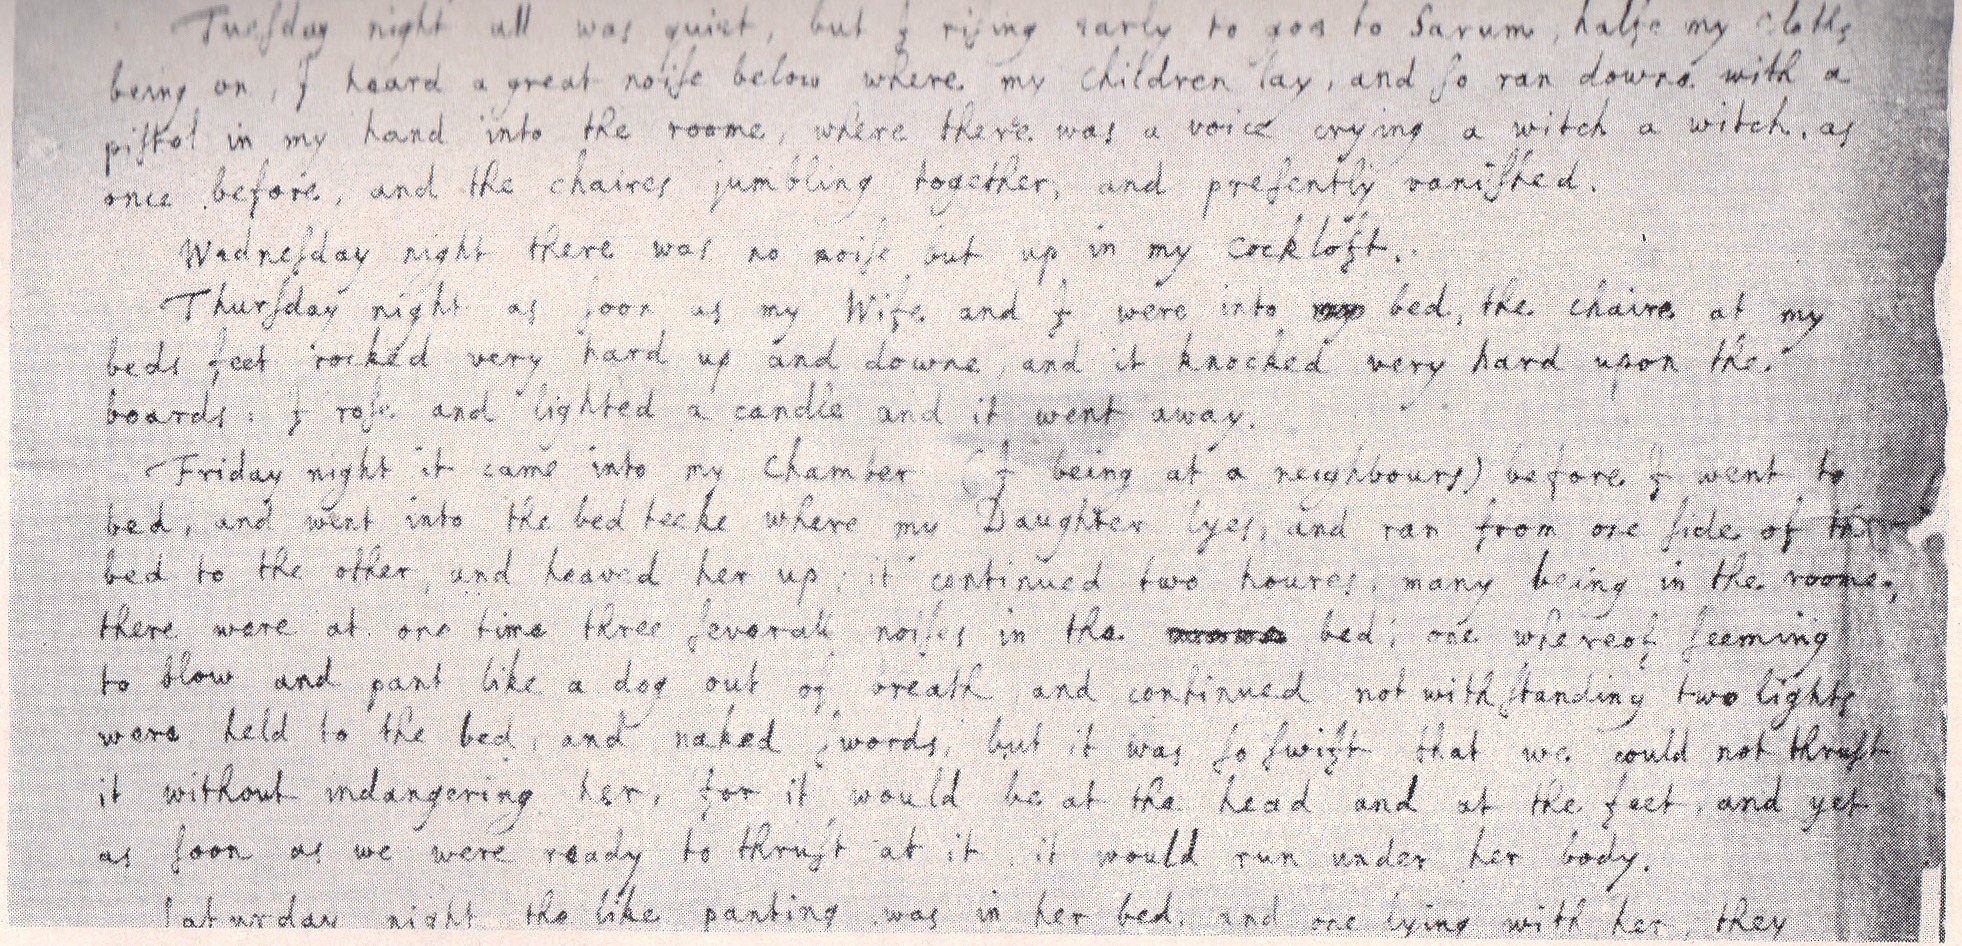 Tuesday night all was quiet, but I rising early to goe to Sarum, halfe my cloths
being on, I heard a great noise below where my children lay, and so ran downe with a
pistol in my hand into the roome, where there was a voice crying a witch a witch, as
once before, and the chaires jumbling together, and presently vanished.
Wednesday night there was no noise but up in my Cockloft.
Thursday night as soon as my Wife and I were into my bed, the chaire at my
beds feet rocked very hard up and downe, and it knocked very hard upon the
boards: I rose and lighted a candle and it went away.
Friday night it came into my Chamber (I being at a neighbours) before I went to
bed, and went into the bed tecke where my Daughter lyes, and ran from one side of the
bed to the other, and heaved her up; it continued two houres, many being in the roome,
there were at one time three severall noises in the bed; one whereof seeming
to blow and pant like a dog out of breath, and continued notwithstanding two lights
were held to the bed, and naked swords, but it was so swift that we could not thrust
it without indangering her, for it would be at the head and at the feet, and yet
as soon as we were ready to thrust at it, it would run under her body.
Saturday night the like panting was in her bed, and one lying with her, they